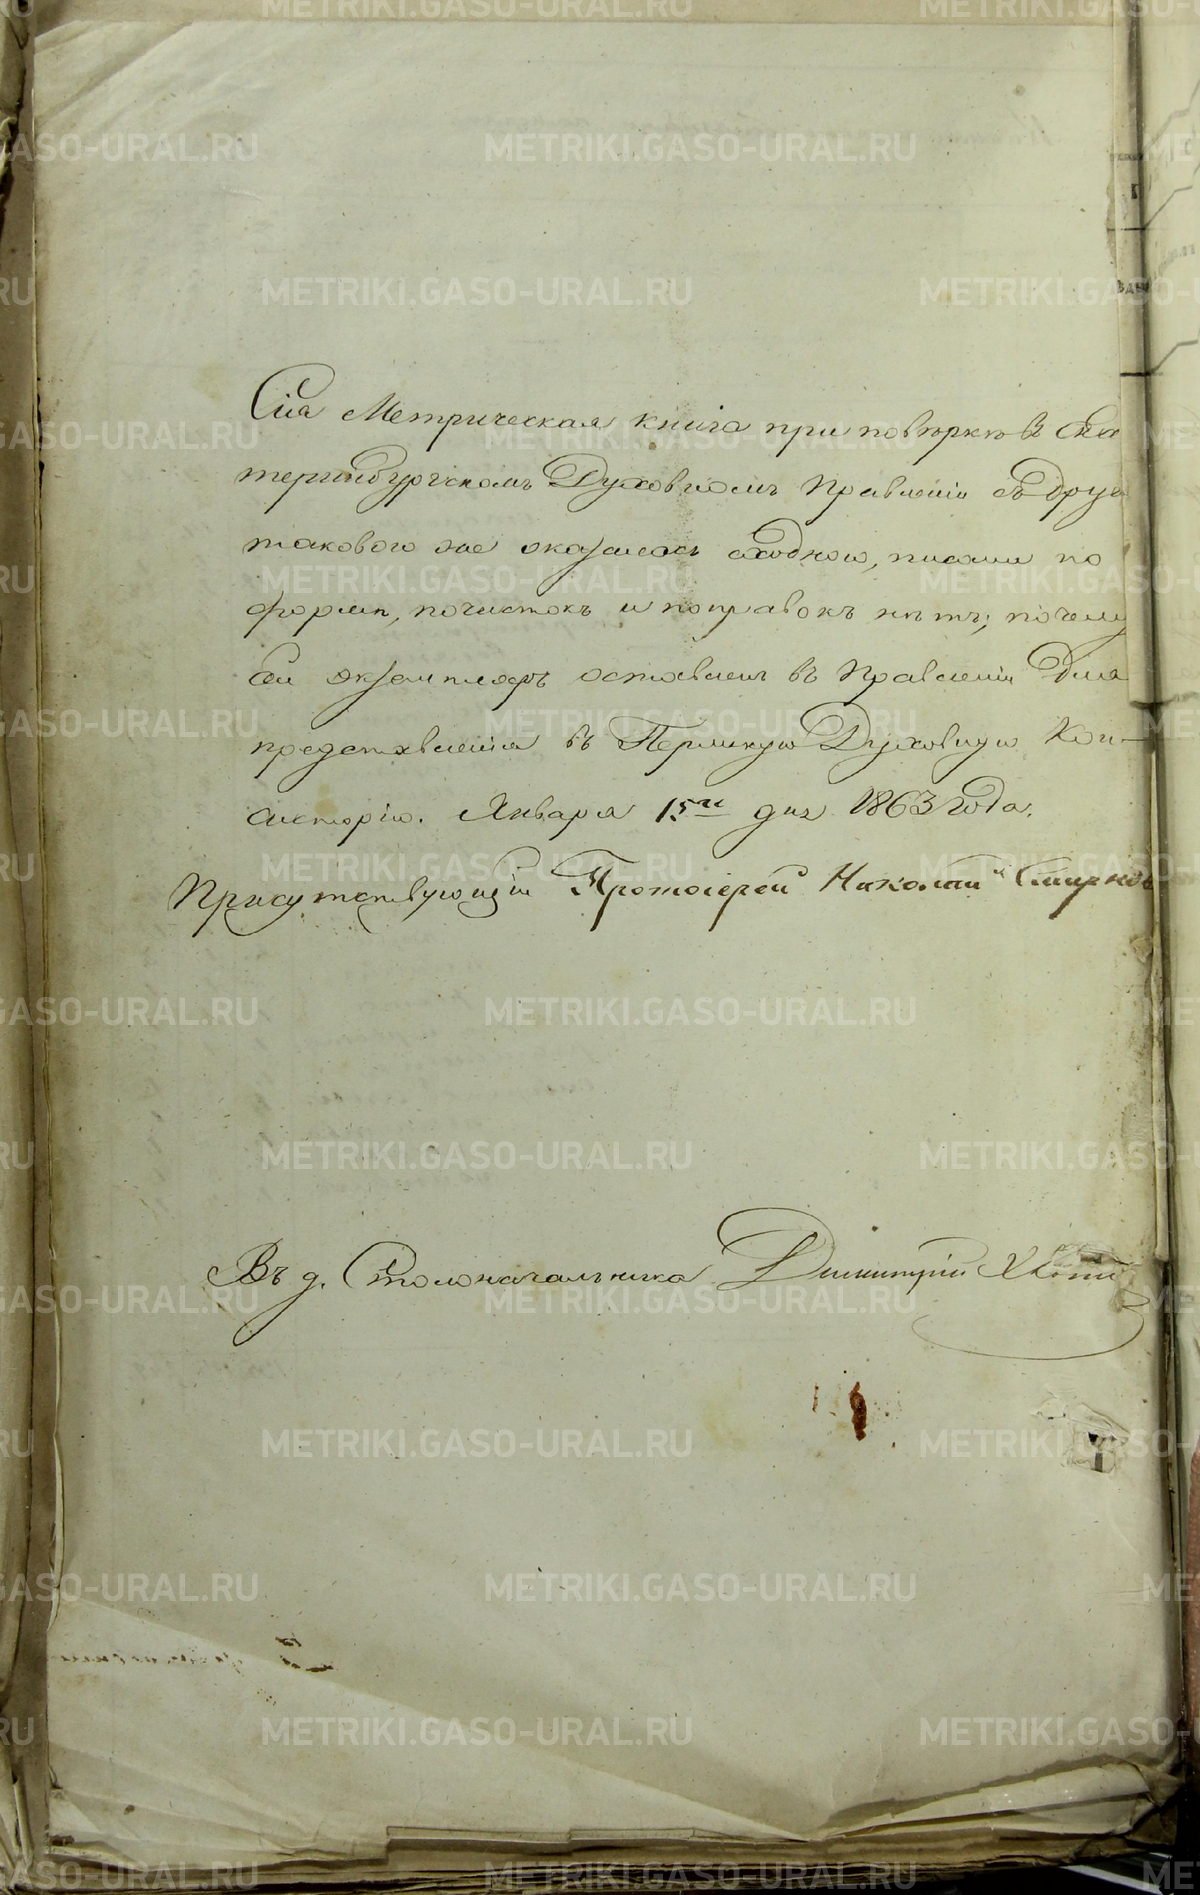 Сія Метрическая книга при повѣркѣ въ Ека
теринбургскомъ Духовномъ Правленіи съ друг
таковою же оказалась сходною, писана по
формѣ, почистокъ и поправокъ нѣтъ; почему
сей экземпляръ оставленъ въ Правленіи для
представленія въ Пермскую Духовную Кон-
систорію. Января 15го дня 1863 года.
Присутствующій Протоіерей Николай Смирнов
Въ д. Столоначальника Димитрій
METRIKI.GASO-URAL.RU